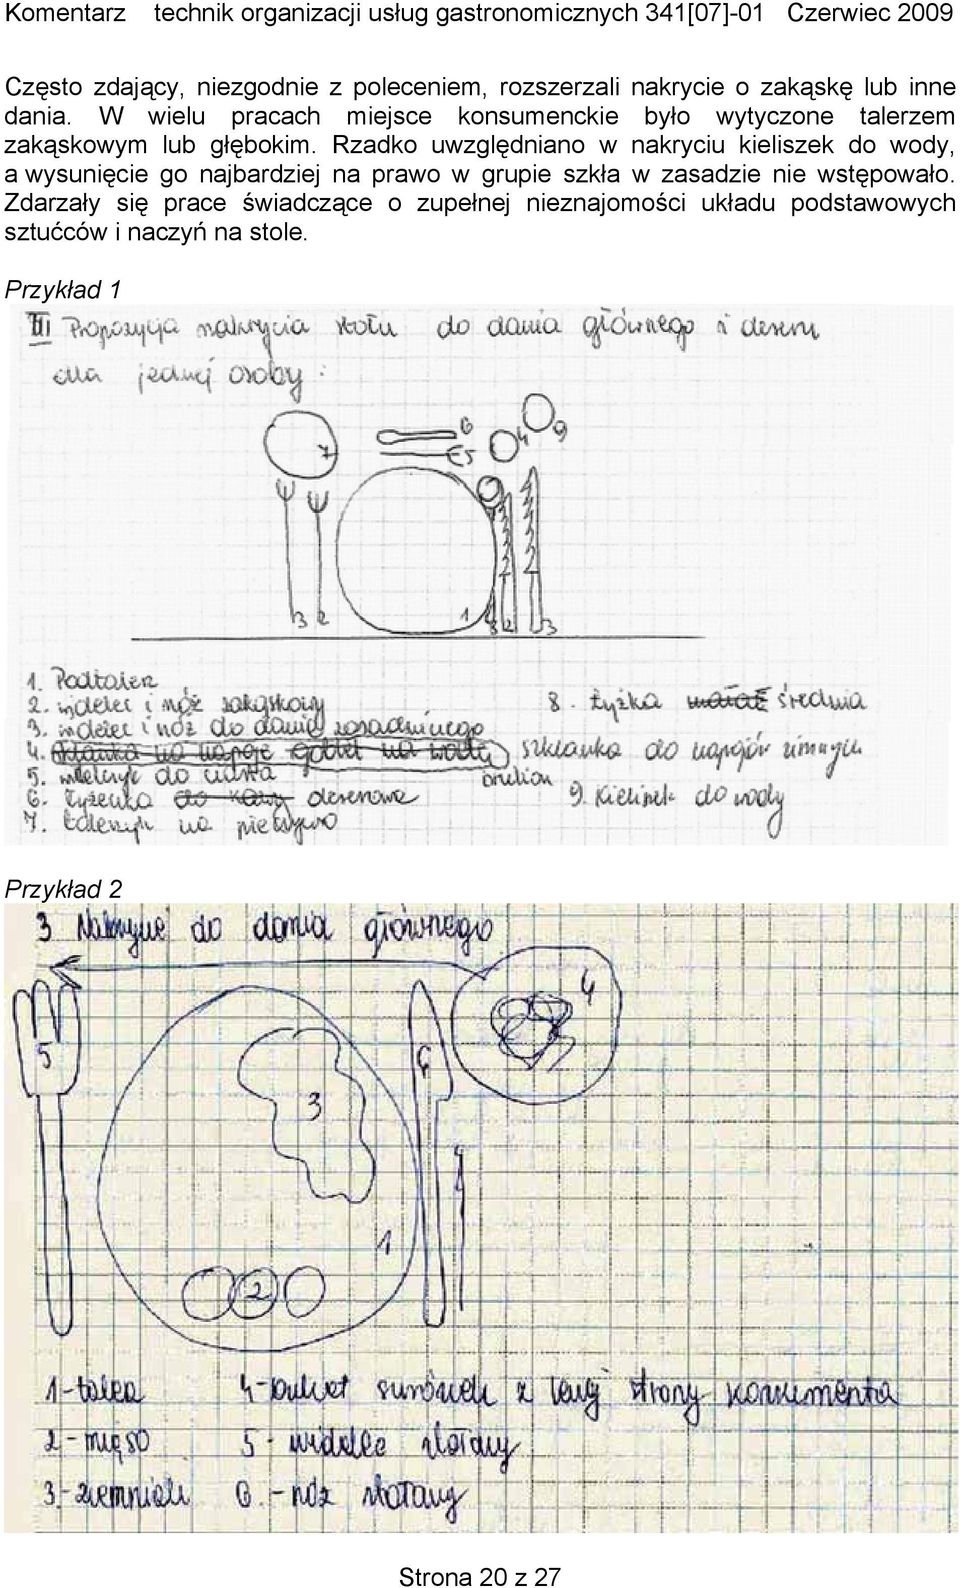 Komentarz technik organizacji usług gastronomicznych 341[07]-01 Czerwiec 2009
Często zdający, niezgodnie z poleceniem, rozszerzali nakrycie o zakąskę lub inne
dania. W wielu pracach miejsce konsumenckie było wytyczone talerzem
zakąskowym lub głębokim. Rzadko uwzględniano w nakryciu kieliszek do wody,
a wysunięcie go najbardziej na prawo w grupie szkła w zasadzie nie wstępowało.
Zdarzały się prace świadczące o zupełnej nieznajomości układu podstawowych
sztućców i naczyń na stole.
Przykład 1
III Propozycja nakrycia stołu do dania głównego i deseru
dla jednej osoby:
6
7 5 4 9
3 2 1 8 2 3
1. Podtalerz
2. widelec i nóż zakąskowy 8. Łyżka średnia
3. widelec i nóż do dania zasadniczego
4. szklanka do napojów zimnych
5. widelczyk do ciasta 9. Kieliszek do wody
6. Łyżeczka do kawy deserowa
7. talerzyk na pieczywo
Przykład 2
3 Nakrycie do dania głównego
4
5 6
3
1
2
1-talerz 4-bukiet surówek z lewej strony konsumenta
2-mięso 5-widelec stołowy
3.-ziemniaki 6.-nóż stołowy
Strona 20 z 27